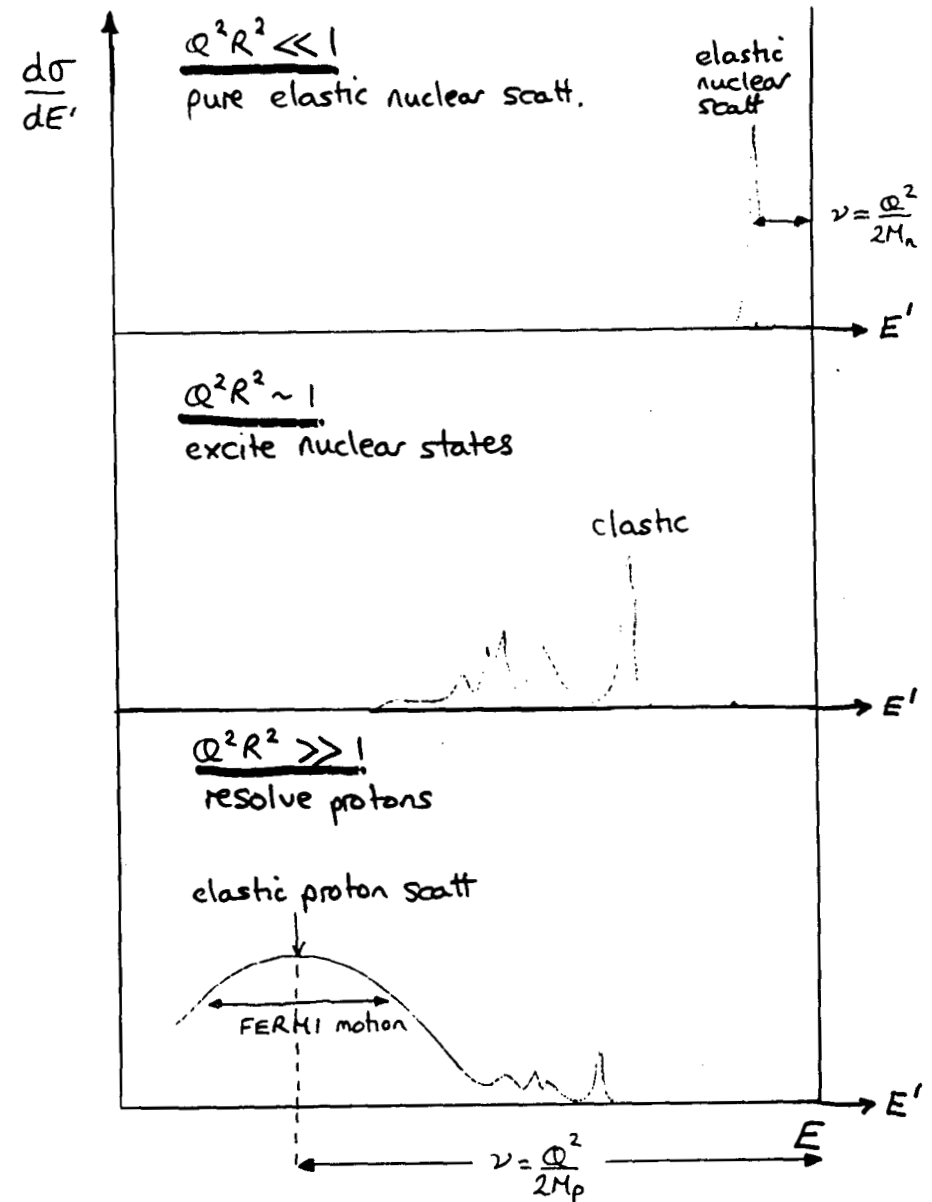 dσ
dE'
Q²R² << 1
pure elastic nuclear scatt.
elastic
nuclear
scatt
ν = Q²
2Mₙ
E'
Q²R² ~ 1
excite nuclear states
elastic
E'
Q²R² >> 1
resolve protons
elastic proton scatt
FERMI motion
E'
E
ν = Q²
2Mₚ